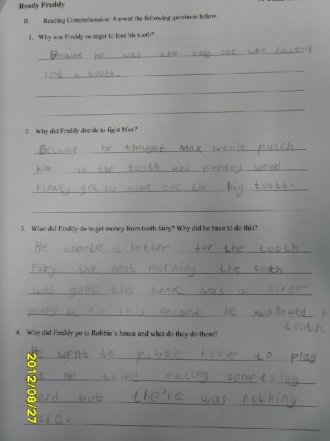 Ready Freddy
II. Reading Comprehension: Answer the following questions below.
1. Why was Freddy so eager to lose his tooth?
Because he was the only one who haven't
lost a tooth.
2. Why did Freddy decide to fight Max?
Because he thought Max would punch
him in the tooth and Freddy would
finaly get to the big tooth.
3. What did Freddy do to get money from tooth fairy? Why did he have to do this?
He wroote a letter for the tooth
Fairy. the next morning the tooth
was gone and was a
this because he swallowed
tooth.
4. Why did Freddy go to Robbie's house and what do they do there?
He went to Robbie house to play
he tried eating something
but there was nothing
2012/08/27